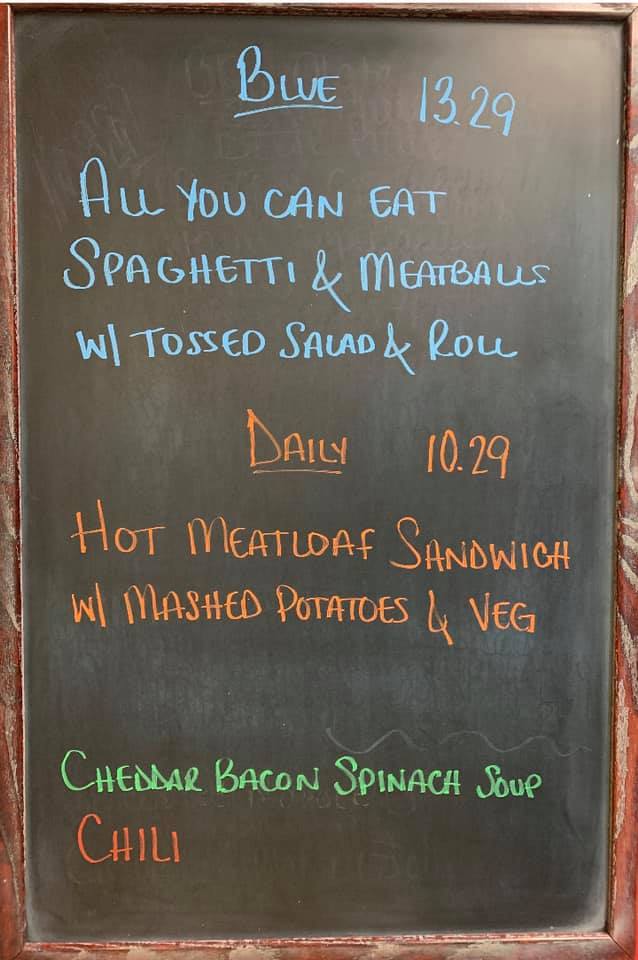 BLUE 13.29
ALL YOU CAN EAT
SPAGHETTI & MEATBALLS
W/ TOSSED SALAD & ROLL
DAILY 10.29
HOT MEATLOAF SANDWICH
W/ MASHED POTATOES & VEG
CHEDDAR BACON SPINACH SOUP
CHILI